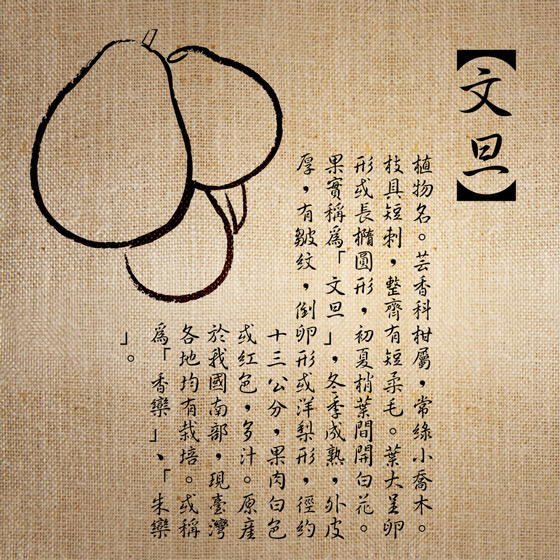 【文旦】
植物名。芸香科柑屬，常綠小喬木。
枝具短刺，整齊有短柔毛。葉大呈卵
形或長橢圓形，初夏梢葉間開白花。
果實稱為「文旦」，冬季成熟，外皮
厚，有皺紋，倒卵形或洋梨形，徑約
十三公分，果肉白色
或紅色，多汁。原產
於我國南部，現臺灣
各地均有栽培。或稱
為「香欒」、「朱欒
」。